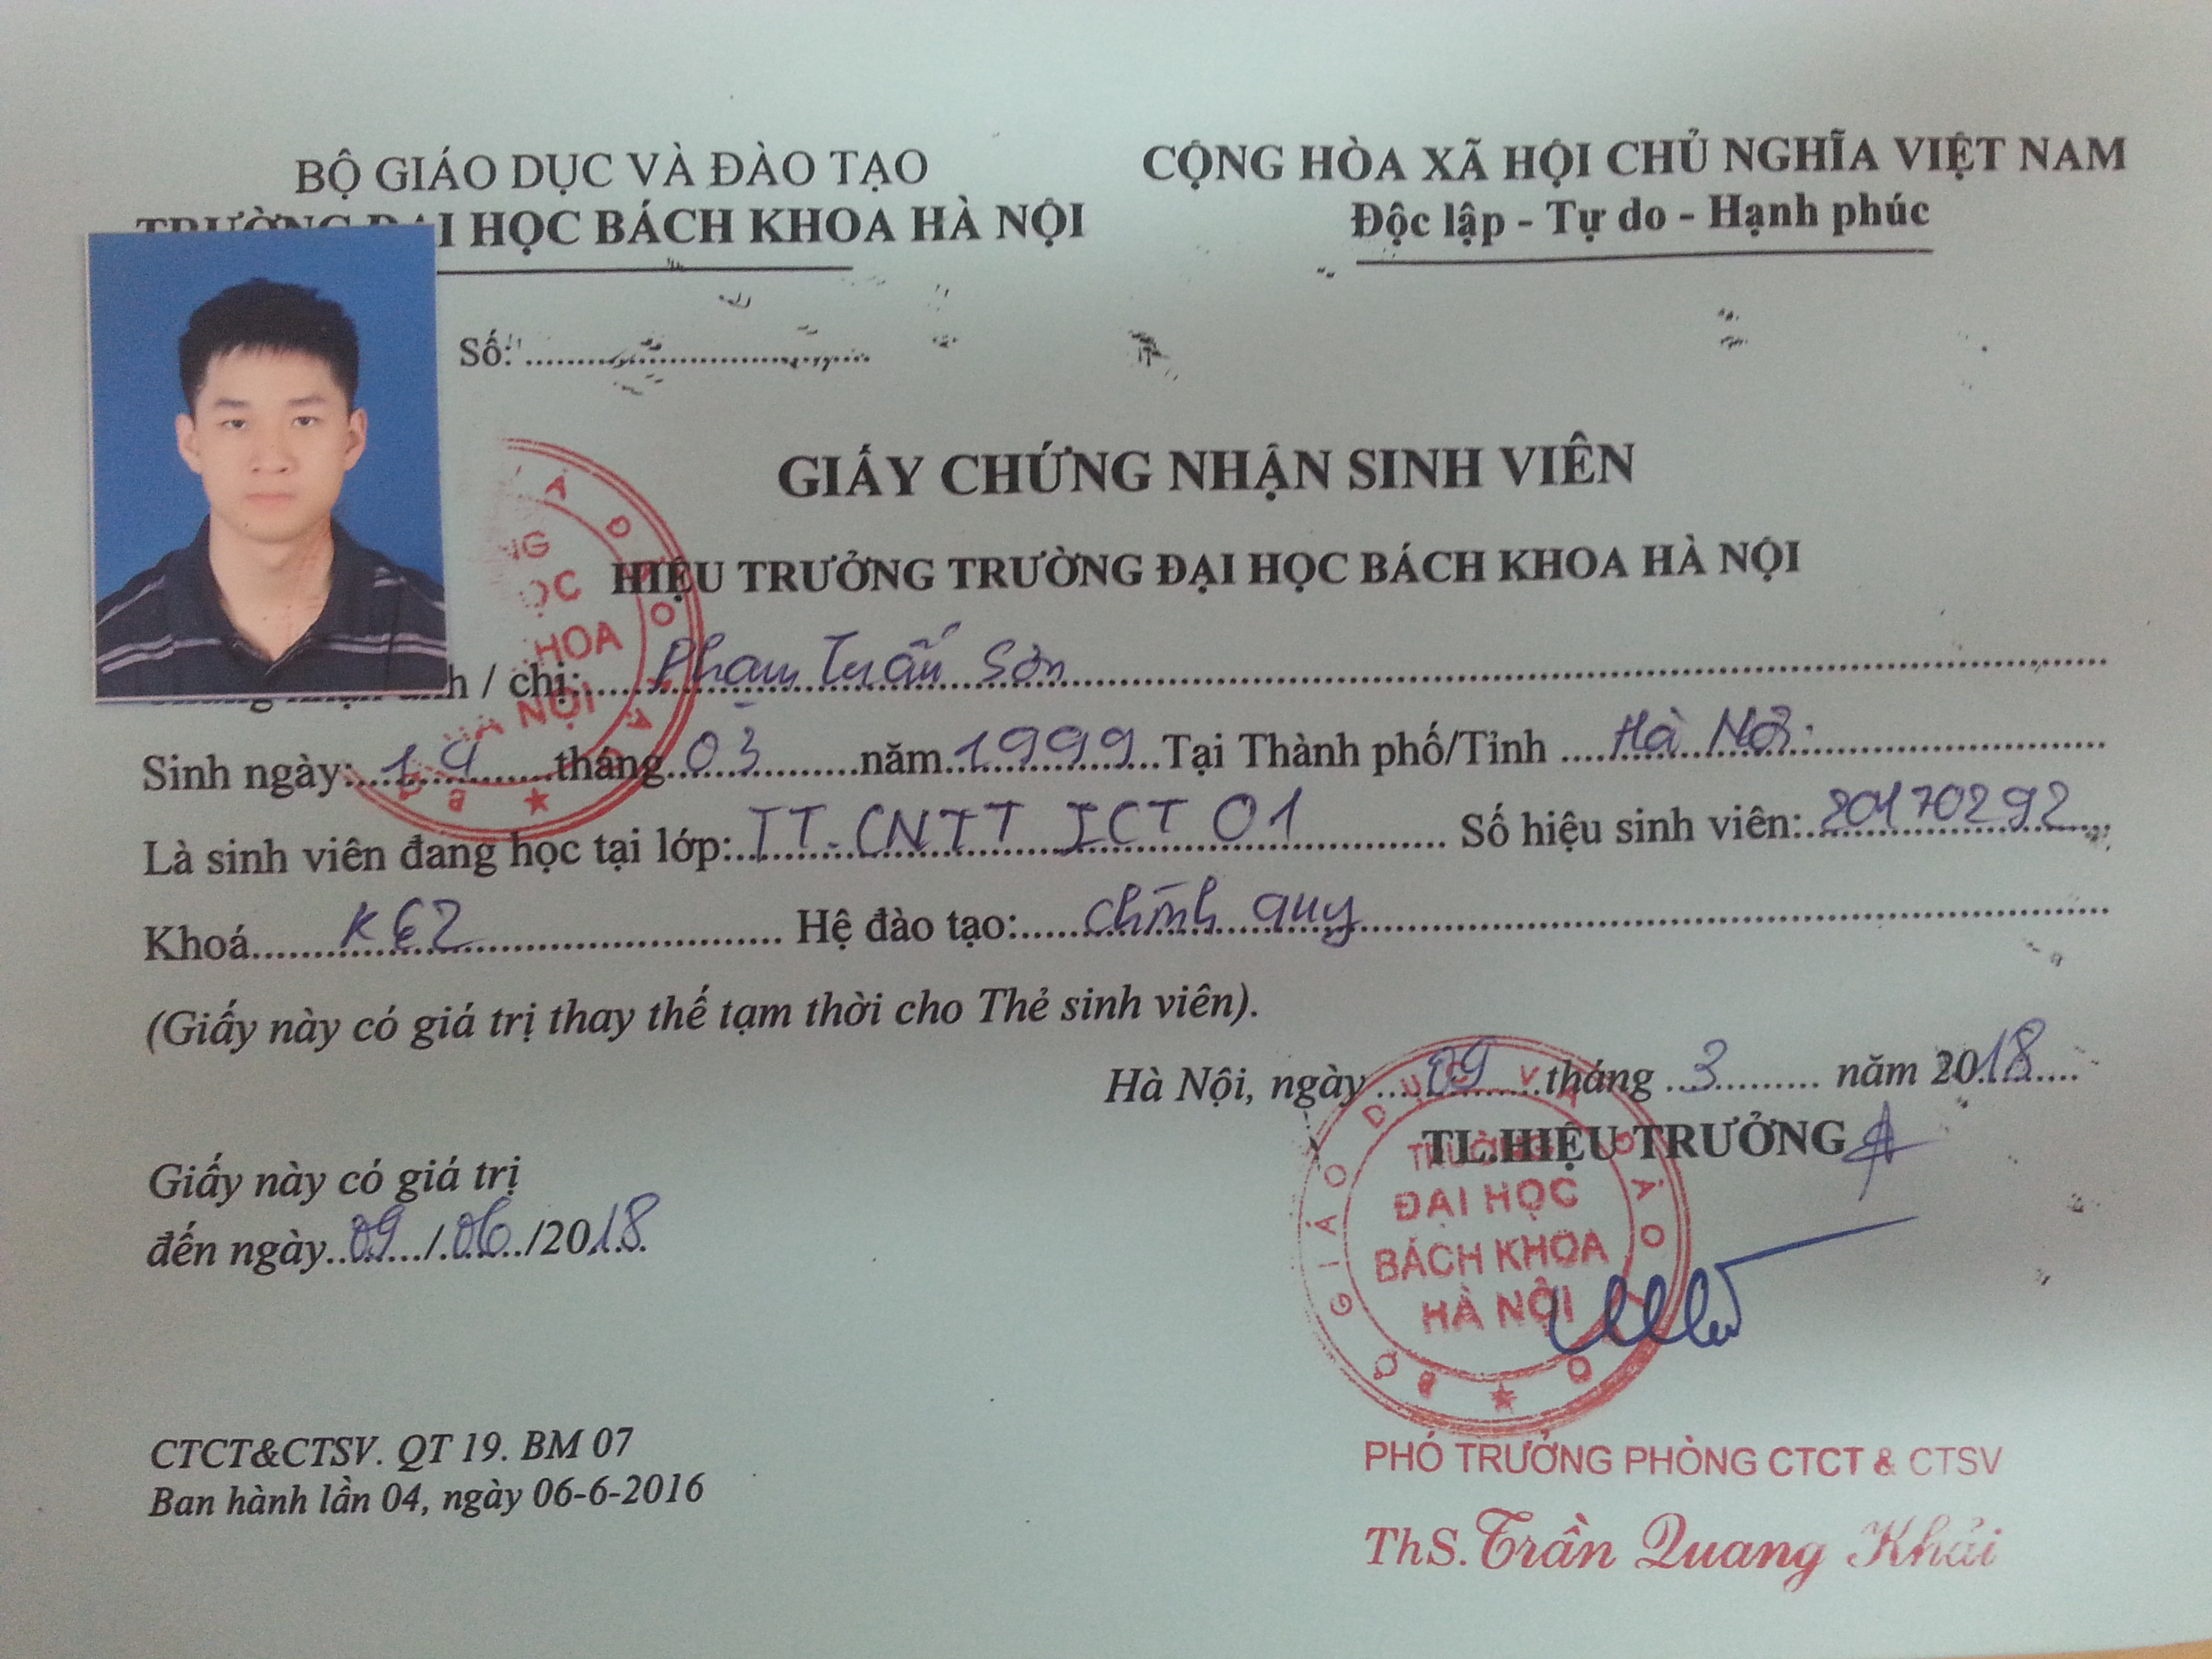 BỘ GIÁO DỤC VÀ ĐÀO TẠO
TRƯỜNG ĐẠI HỌC BÁCH KHOA HÀ NỘI
CỘNG HÒA XÃ HỘI CHỦ NGHĨA VIỆT NAM
Độc lập - Tự do - Hạnh phúc
Số:
GIẤY CHỨNG NHẬN SINH VIÊN
HIỆU TRƯỞNG TRƯỜNG ĐẠI HỌC BÁCH KHOA HÀ NỘI
/ chị: Phạm Tuấn Sơn
Sinh ngày: 19 tháng 03 năm 1999 Tại Thành phố/Tỉnh Hà Nội
Là sinh viên đang học tại lớp: TT.CNTT ICT 01 Số hiệu sinh viên: 20170292
Khoá K62 Hệ đào tạo: chính quy
(Giấy này có giá trị thay thế tạm thời cho Thẻ sinh viên).
Hà Nội, ngày 09 tháng 3 năm 2018
TL.HIỆU TRƯỞNG
Giấy này có giá trị
đến ngày 09/06/2018
TRƯỜNG
ĐẠI HỌC
BÁCH KHOA
HÀ NỘI
BỘ GIÁO DỤC VÀ ĐÀO TẠO
HOA
HÀ NỘI
PHÓ TRƯỞNG PHÒNG CTCT & CTSV
ThS. Trần Quang Khải
CTCT&CTSV. QT 19. BM 07
Ban hành lần 04, ngày 06-6-2016